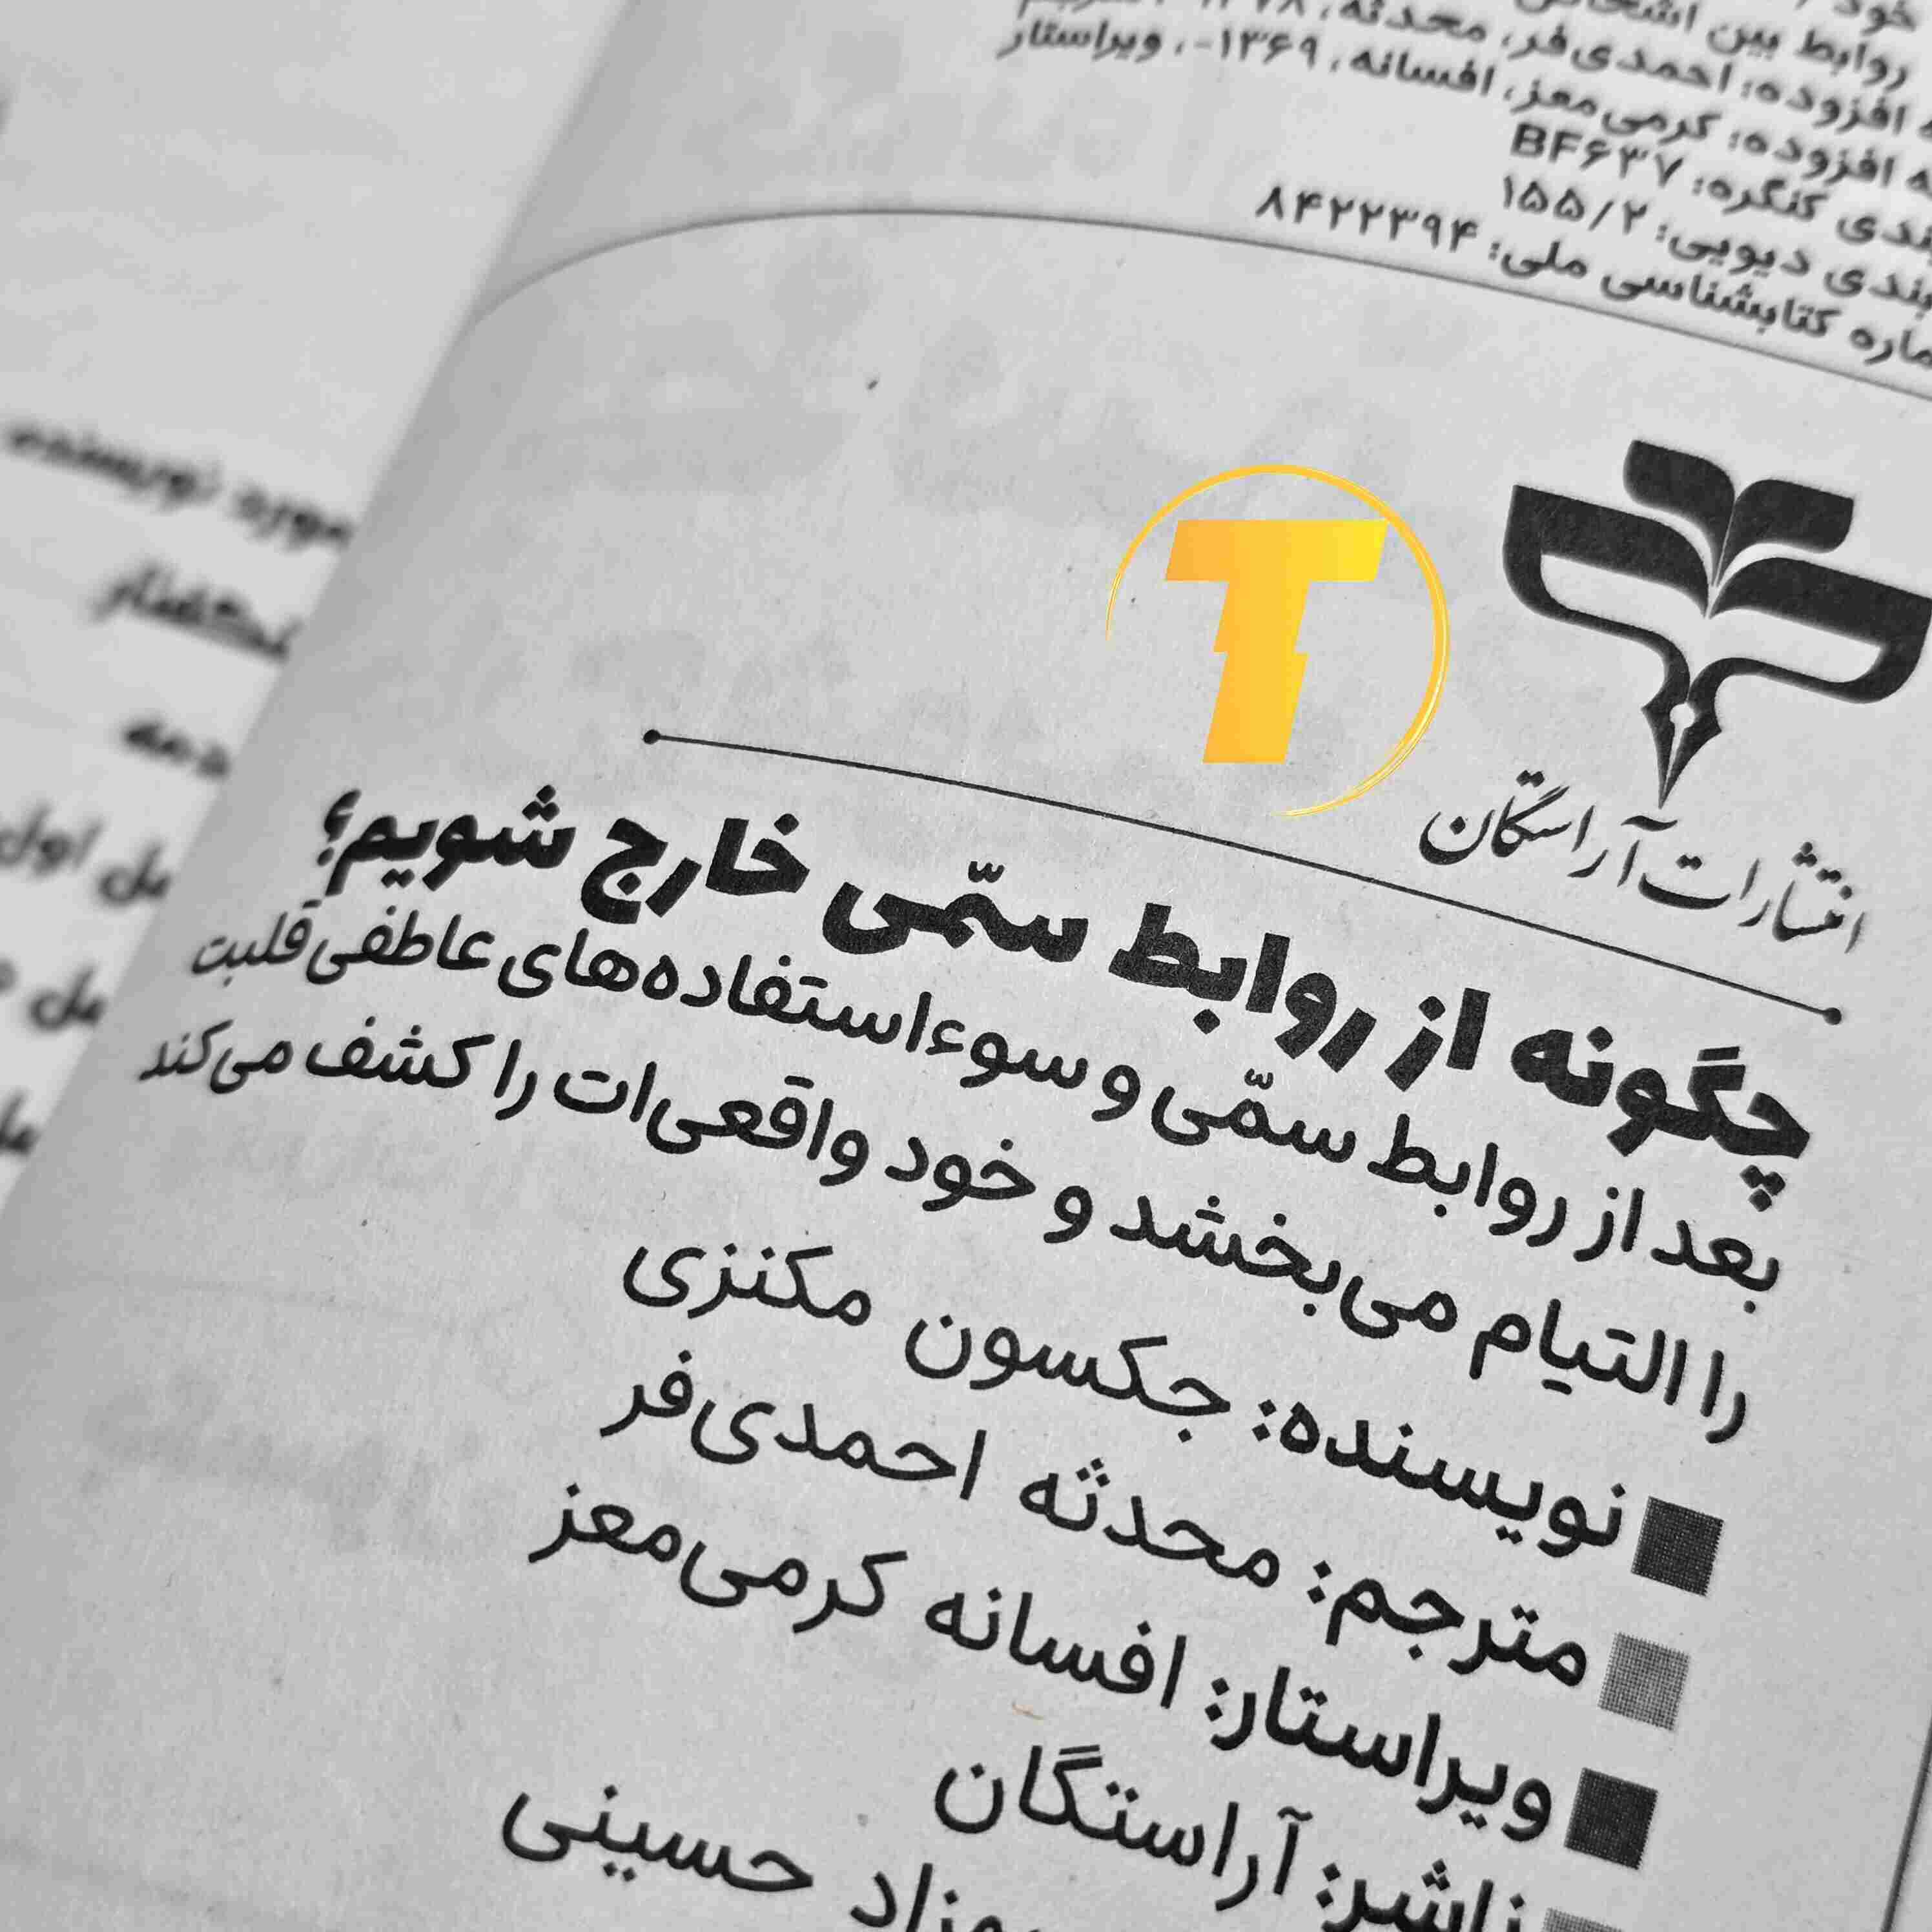 روابط بین
افزوده: احمدی‌فر، محدثه،
افزوده: کرمی‌معز، افسانه، ۱۳۶۹-، ویراستار
کنگره: BF۶۳۷
دیویی: ۱۵۵/۲
کتابشناسی ملی: ۸۴۲۲۳۹۴
T
انتشارات آراستگان
چگونه از روابط سمّی خارج شویم؟
بعد از روابط سمّی و سوءاستفاده‌های عاطفی قلبت
را التیام می‌بخشد و خود واقعی‌ات را کشف می‌کند
نویسنده: جکسون مکنزی
مترجم: محدثه احمدی‌فر
ویراستار: افسانه کرمی‌معز
ناشر: آراستگان
حسینی
مورد نویسنده